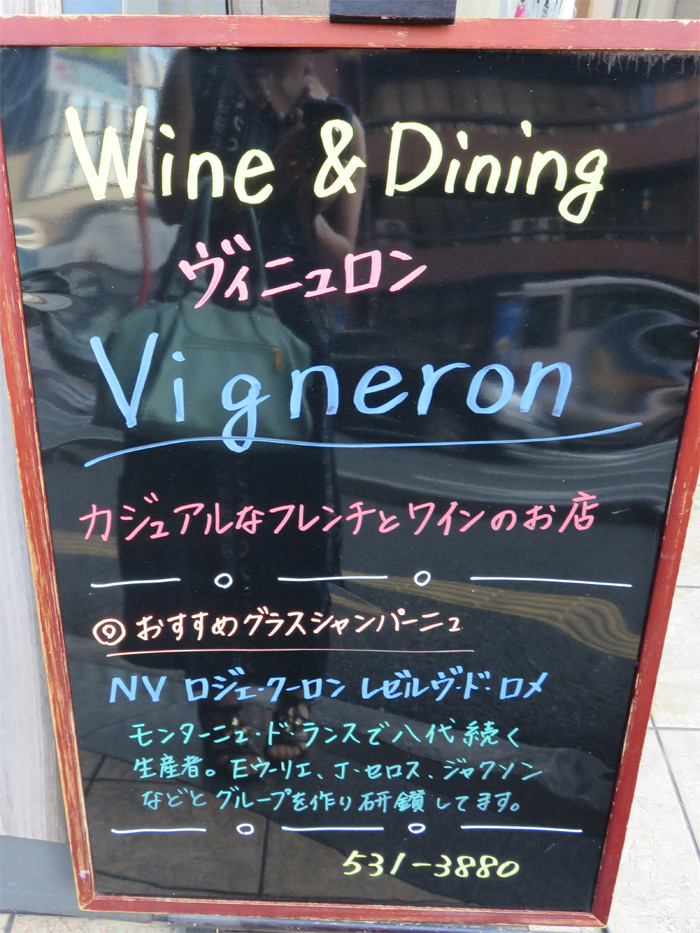 Wine & Dining
ヴィニュロン
Vigneron
カジュアルなフレンチとワインのお店
◎おすすめグラスシャンパーニュ
NV ロジェ・クーロン レゼルヴ・ド・ロメ
モンターニュ・ド・ランスで八代続く
生産者。E・ウーリエ、J・セロス、ジャクソン
などとグループを作り研鑽してます。
531-3880